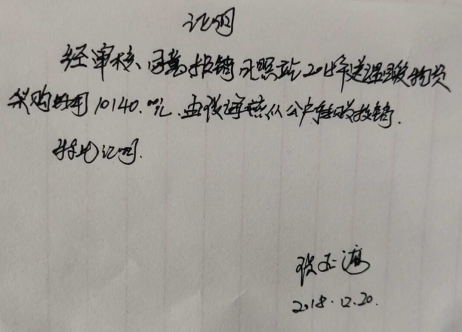 证明
经审核、同意报销 日照站2018年送温暖物资
采购费用10140.元.由张海燕从公户转账报销.
特此证明.
张
2018.12.20.